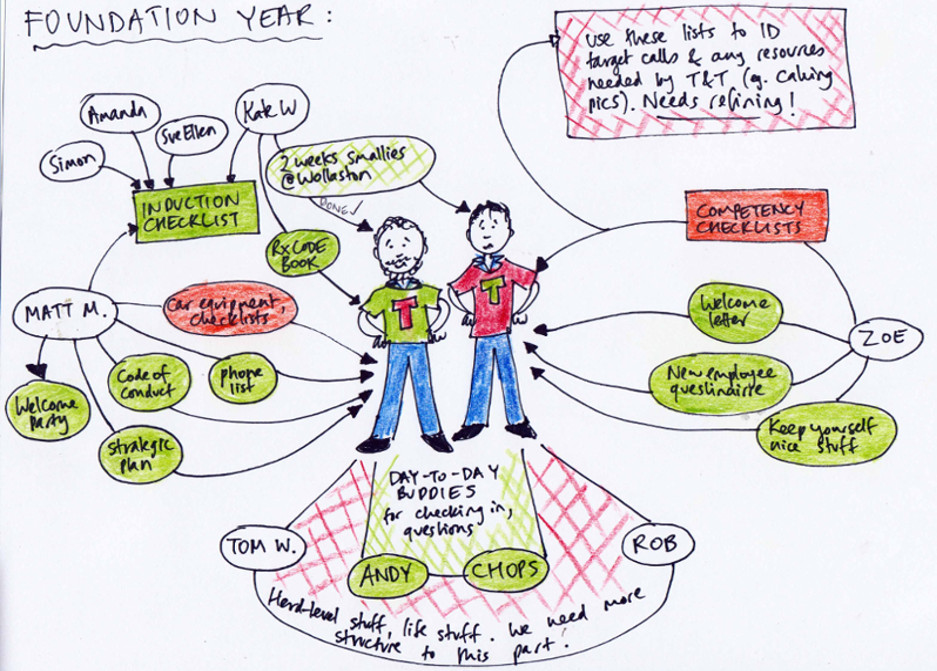 FOUNDATION YEAR:
use these lists to ID
target calls & any resources
needed by T&T (eg. calving
pics). Needs refining!
Amanda
Kate W
Sue Ellen
Simon
2 weeks smallies
@Wollaston
DONE ✓
INDUCTION
CHECKLIST
COMPETENCY
CHECKLISTS
Rx CODE
BOOK
MATT M.
Car equipment,
checklists
T
T
Welcome
letter
ZOE
Code of
conduct
Phone
list
New employee
questinairre
Welcome
party
Strategic
plan
Keep yourself
nice stuff
DAY-TO-DAY
BUDDIES
for checking in,
questions
TOM W.
ROB
ANDY
CHOPS
Herd-level stuff, life stuff. We need more
structure to this part!